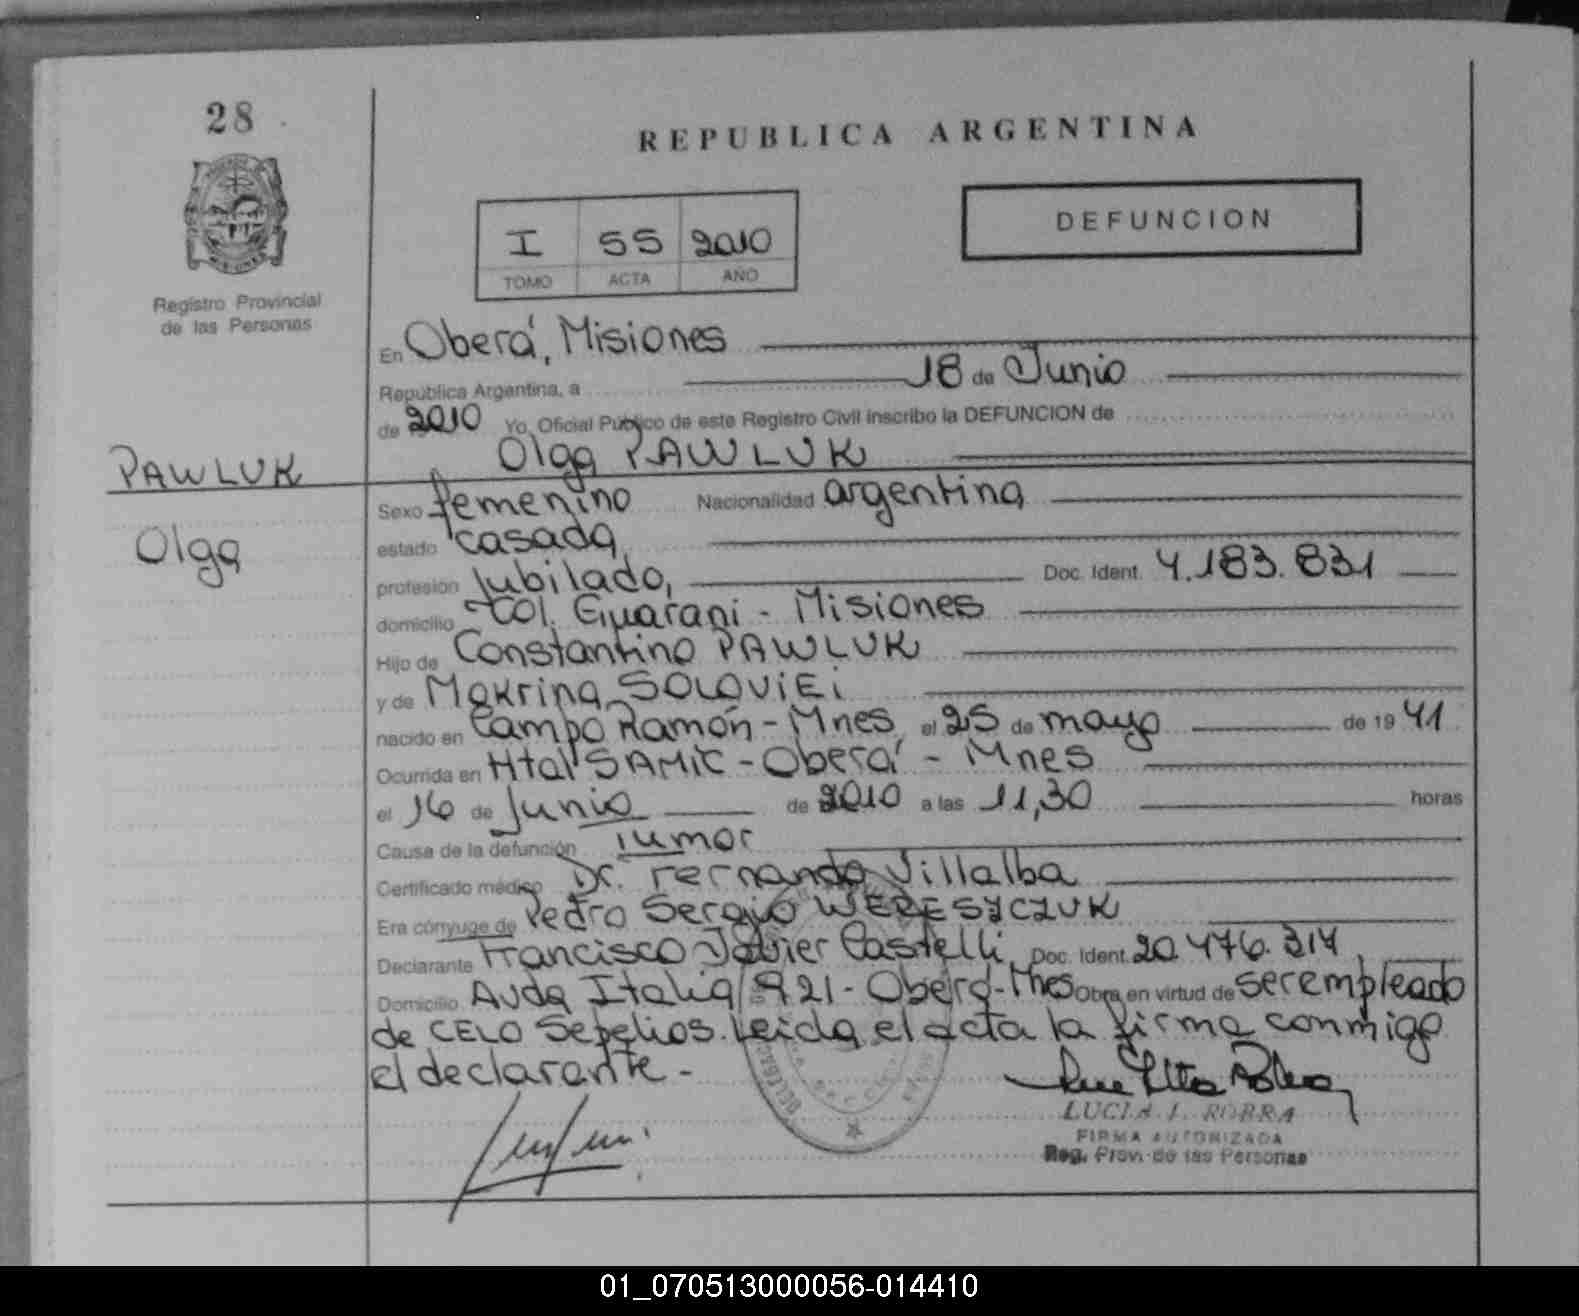 28
REPUBLICA ARGENTINA
DEFUNCION
I 55 2010
TOMO ACTA AÑO
Registro Provincial
de las Personas
En Oberá, Misiones
República Argentina, a 18 de Junio
de 2010 Yo, Oficial Público de este Registro Civil inscribo la DEFUNCION de
Olga PAWLUK
PAWLUK
Olga
Sexo femenino Nacionalidad argentina
estado casada,
profesión Jubilado, Doc. Ident. 4.183.831
domicilio Col. Guarani - Misiones
Hijo de Constantino PAWLUK
y de Makrina SOLOVIEi
nacido en Campo Ramón - Mnes, el 25 de mayo de 19 41
Ocurrida en Htal SAMIC - Oberá - Mnes
el 16 de Junio de 2010 a las 11,30 horas
Causa de la defunción Tumor
Certificado médico Dr. Fernando Villalba
Era cónyuge de Pedro Sergio WERESZCZUK
Declarante Francisco Javier Castelli, Doc. Ident. 20.476.314,
Domicilio Avda Italia 921 - Oberá - Mnes Obra en virtud de ser empleado
de CELO Sepelios. Leida el acta la firma conmigo
el declarante. -
LUCIA I. RORRA
FIRMA AUTORIZADA
Reg. Prov. de las Personas
01_070513000056-014410